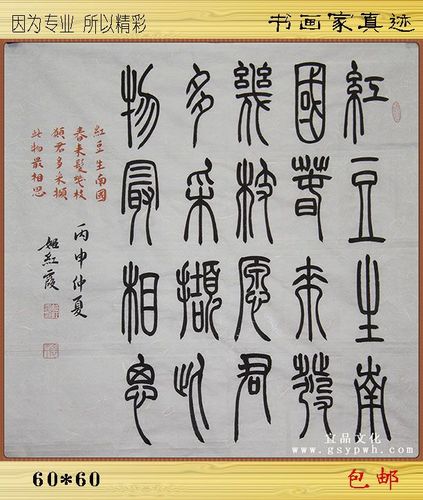 因为专业 所以精彩
书画家真迹
紅豆生南
國春来發
幾枝愿君
多采擷此
物最相思
紅豆生南國
春来發幾枝
願君多采擷
此物最相思
丙申仲夏
姬紅霞
宜品文化
www.gsypwh.com
60*60
包邮